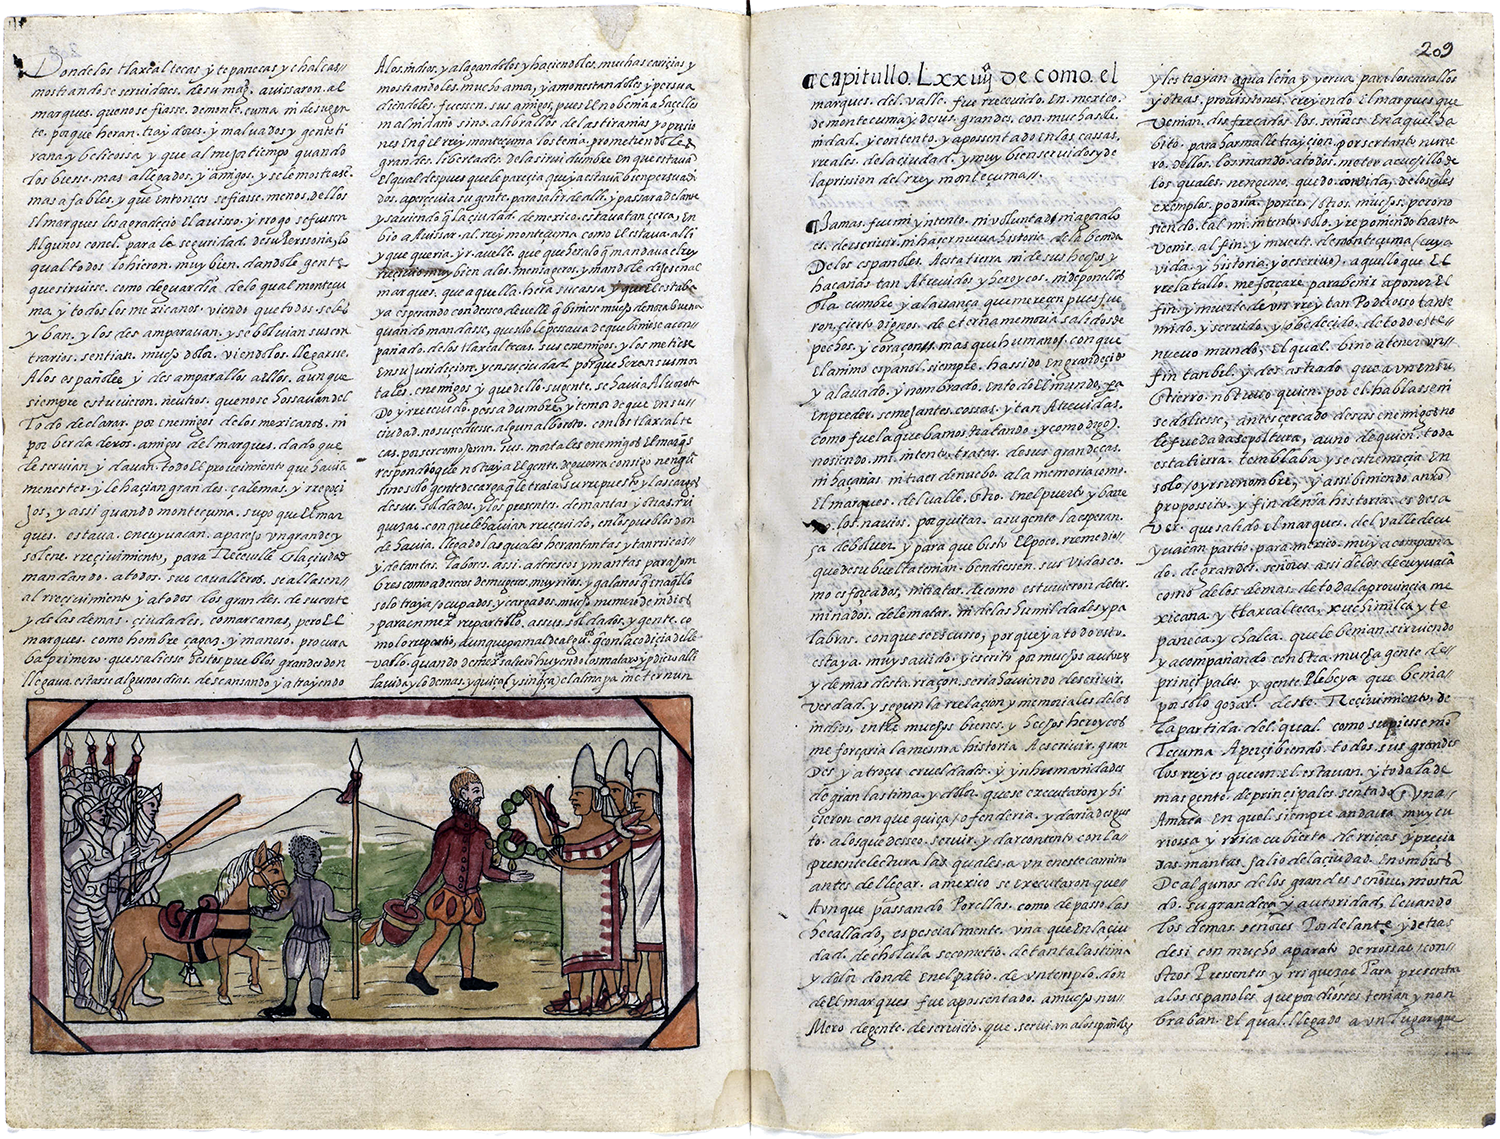 Donde los tlaxcaltecas y tepanecas y chalcas
mostrandose servidores, de su mag. avissaron, al
marques, que no se fiasse, de monteçuma ni de su gen
te, porque heran, traydores, y malvados y gente ti
rana y belicossa y que al mejor tiempo quando
los biesse mas allegados, y amigos, y se le mostrase
mas afables, y que entonces se fiasse, menos, dellos
El marques les agradeçio El avisso, y rrogo se fuesen
Algunos con el, para la seguridad, de su Perssona, lo
qual todos lo hiçieron, muy bien, dandole gente
que sirviese, como de guardia, de lo qual monteçu
ma, y todos los mexicanos, viendo que todos, se les
yban, y los des amparavan, y se bolvian sus con
trarios, sentian, mucho dolor, viendolos, llegarse,
A los españoles y des amparallos a ellos, aunque
siempre estuvieron, neutros, que no se hossavan del
Todo declarar, por enemigos de los mexicanos, ni
por berdaderos, amigos del marques, dado que
le servian, y davan, todo El proveimiento que havia
menester, y le haçian grandes, çalemas, y rregoçi
jos, y assi quando monteçuma, supo que El mar
ques, estava, en cuyuacan, aparejo un grande y
solene rreçivimiento, para Receville En la çiudad
mandando, a todos, sus cavalleros, se allasen
al rreçivimiento y a todos, los grandes, de su corte
y de las demas, ciudades, comarcanas, pero El
marques, como hombre, çagaz, y manoso, procura
ba primero, que ssaliesse destos pueblos grandes don
llegava, estarse algunos dias, descansando y atrayendo
A los indios, y alagandolos y haçiendoles, muchas cariçias y
mostrandoles, mucho amor, y amonestandoles y persua
diendoles, fuessen, sus amigos, pues El no benia a haçelles
mal ni daño sino, a libralles de las tiranias y opresio
nes En q̃ El rrey monteçuma los tenia, prometiendoles
grandes, libertades, de la servidumbre en que estavan
El qual despues que le pareçia que ya estavan bien persuadi
dos, aperçivia su gente, para salir de alli, y passar adelante
y saviendo q̃ la çiudad, de mexico, estava tan çerca, En
bio a Avissar, al rrey monteçuma como El estava alli
y que queria, yr a velle, que que hera lo q̃ mandava el rrey
muy bien a los mensageros, y mandole deçir al
marques, que aquella, hera su cassa y que El estaba
ya esperando con desseo, de velle q̃ biniese mucho de nora buena
quando mandasse, que solo le pessava de que biniesse acon
pañado, de los tlaxcaltecas, sus enemigos, y los metiese
En su juridiçion, y en su ciudad, porque heran sus mor
tales, enemigos y que dello su gente, se havia Alborota
Do y rreçevido, pessadumbre, y temor de que En su
ciudad, no suçediese, algun alboroto, con los tlaxcalte
cas, por ser como heran, sus, mortales enemigos El marqs
respondio que no traya El gente, de guerra consigo ningũ
sino solo gente de carga q̃ le traia su rrepuesto y las cargas
de sus, soldados, y los presentes, de mantas, y otras, rri
quezas, con que le havian rreçevido, en los pueblos don
de havia, llegado las quales heran tantas y tan rricas
y de tantas, labores, assi, adreços y mantas para hom
bres como adereços de mugeres, muy rricos, y galanos q̃ en aquello
solo traya, ocupados, y cargados, mucho numero de indios
, para en mexco, repartillo, a ssus, soldados, y gente, co
mo lo repartio, aunque para mal de alguos q̃ con la codiçia de lle
vallo, quando de mexco salieron huyendo los mataron y dieron alli
la vida y lo demas, y quiça (y sin quiça) el alma para in eternun
209
¶ capitullo. Lxxiiij de como. el
marques. del. valle. fue rreçevido. En mexico.
de monteçuma y de sus. grandes. con mucha sole
nidad. y contento. y apossentado en las cassas.
rreales. de la çiudad. y muy bien servidos y de
la prission del rrey monteçuma.
¶ Jamas. fue mi yntento. ni voluntad ni agora lo
es. de escrivir. ni haçer nueva historia de la benida
De los españoles. A esta tierra ni de sus hechos y
haçañas tan Atrevidos y heroycos. ni de ponellos
En la cumbre y alavança que mereçen pues fue
ron. çierto dignos. de eterna memoria salidos de
pechos. y coraçones. mas que humanos. con que
El animo español. siempre. ha ssido engrandeçido
y alavado. y nombrado. en todo El mundo. pa
Enprender. semejantes. cossas. y tan Atrevidas.
como fue la que bamos tratando. y como digo.
no siendo. mi intento. tratar. de sus grandeças.
ni haçañas. ni traer de nuebo. a la memoria como
El marques. del valle. dio. en el puerto y barre
no. los navios. por quitar. a su gente la esperan
ça de bolver y para que bisto El poco. rremedio
que de su buelta tenian. bendiessen. sus vidas. co
mo esforçados. ni tratar. de como estuvieron deter
minados. de le matar. ni de las humildades y pa
labras. con que se escusso. porque ya todo esto.
esta ya. muy savido. y escrito por muchos autores
y demas desta rraçon. seria haviendo de escrivir
verdad. y segun la rrelaçion y memoriales de los
indios. entre muchos bienes. y hechos heroycos
me forçaria la mesma historia. A escrivir. gran
Des y atroçes. crueldades. y ynhumanidades
de gran lastima. y dolor. que se executaron y hi
çieron con que quiça ofenderia. y daria desgus
to. a los que desseo. servir. y dar contento con la
presente lectura las. quales. aun en este camino
antes de llegar. a mexico se executaron que
Aunque passando Por ellas. como de passo las
he callado. espeçialmente. una que en la çiu
dad. de cholula se cometio. de tanta lastima
y dolor donde En el patio. de un templo. don
de El marques fue apossentado. a mucho nu
Mero de gente. de serviçio. que. servian a los españoles
y les trayan agua leña y yerva. para los cavallos
y otras, provissiones, creyendo El marques que
venian, disfrazados los, señores En aquel ha
bito, para harmalle trayçion, por ser tanto nume
ro, dellos, los mando, a todos, meter a cuchillo de
los quales, nenguno, quedo con vida, de los quales
exemplos, podria, poner, otros, muchos, pero no
siendo, tal, mi, intento, solo, y rreponiendo hasta
venir, al fin, y muerte, de monteçuma (cuya
vida y historia, yo escrivo), a quello que El
rrelatallo, me forçare, para benir a poner, El
fin, y muerte, de un rrey tan Poderosso tan te
mido, y servido, y obedeçido, de todo este
nuevo mundo, El qual, bino a tener, un
fin tan bil, y desastrado, que aun en su
Entierro, no tuvo quien, por el hablasse ni
se doliesse, antes çercado de sus enemigos no
le fue dada sepoltura, a uno de quien, toda
esta tierra, temblaba y se estremeçia En
solo, oyr su nombre, y assi biniendo a nr̃o
proposito, y fin, desta historia, es de sa
ver que salido El marques, del valle de cu
yuacan partio, para mexico, muy a compaña
do, de grandes, señores assi de los de cuyuacan
como de los, demas, de toda la provinçia me
xicana, y tlaxcalteca, xuchimilca y te
paneca, y chalca, que le benian, sirviendo
y acompañando con otra, mucha gente de
prinçipales, y gente, Plebeya, que benia
por solo gozar, deste, Reçivimiento, de
la partida, del, qual, como supiesse mon
Tecuma Aperçibiendo, todos, sus grandes
los rreyes que con el, estavan, y toda la de
mas gente de prinçipales, sentado, En una
Amaca En qual, siempre andava, muy cu
riossa y rrica cubierta de rricas, y preçia
das mantas, salio de la çiudad, En ombros
De algunos de los grandes señores, mostran
do, su grandeza y autoridad, llevando
los demas señores Por delante, y detras
de si con mucho aparato de rrossas, con
otros Pressentes, y rriquezas Para presentar
a los españoles, que por diosses tenian y non
braban. El qual, llegado a un lugar que